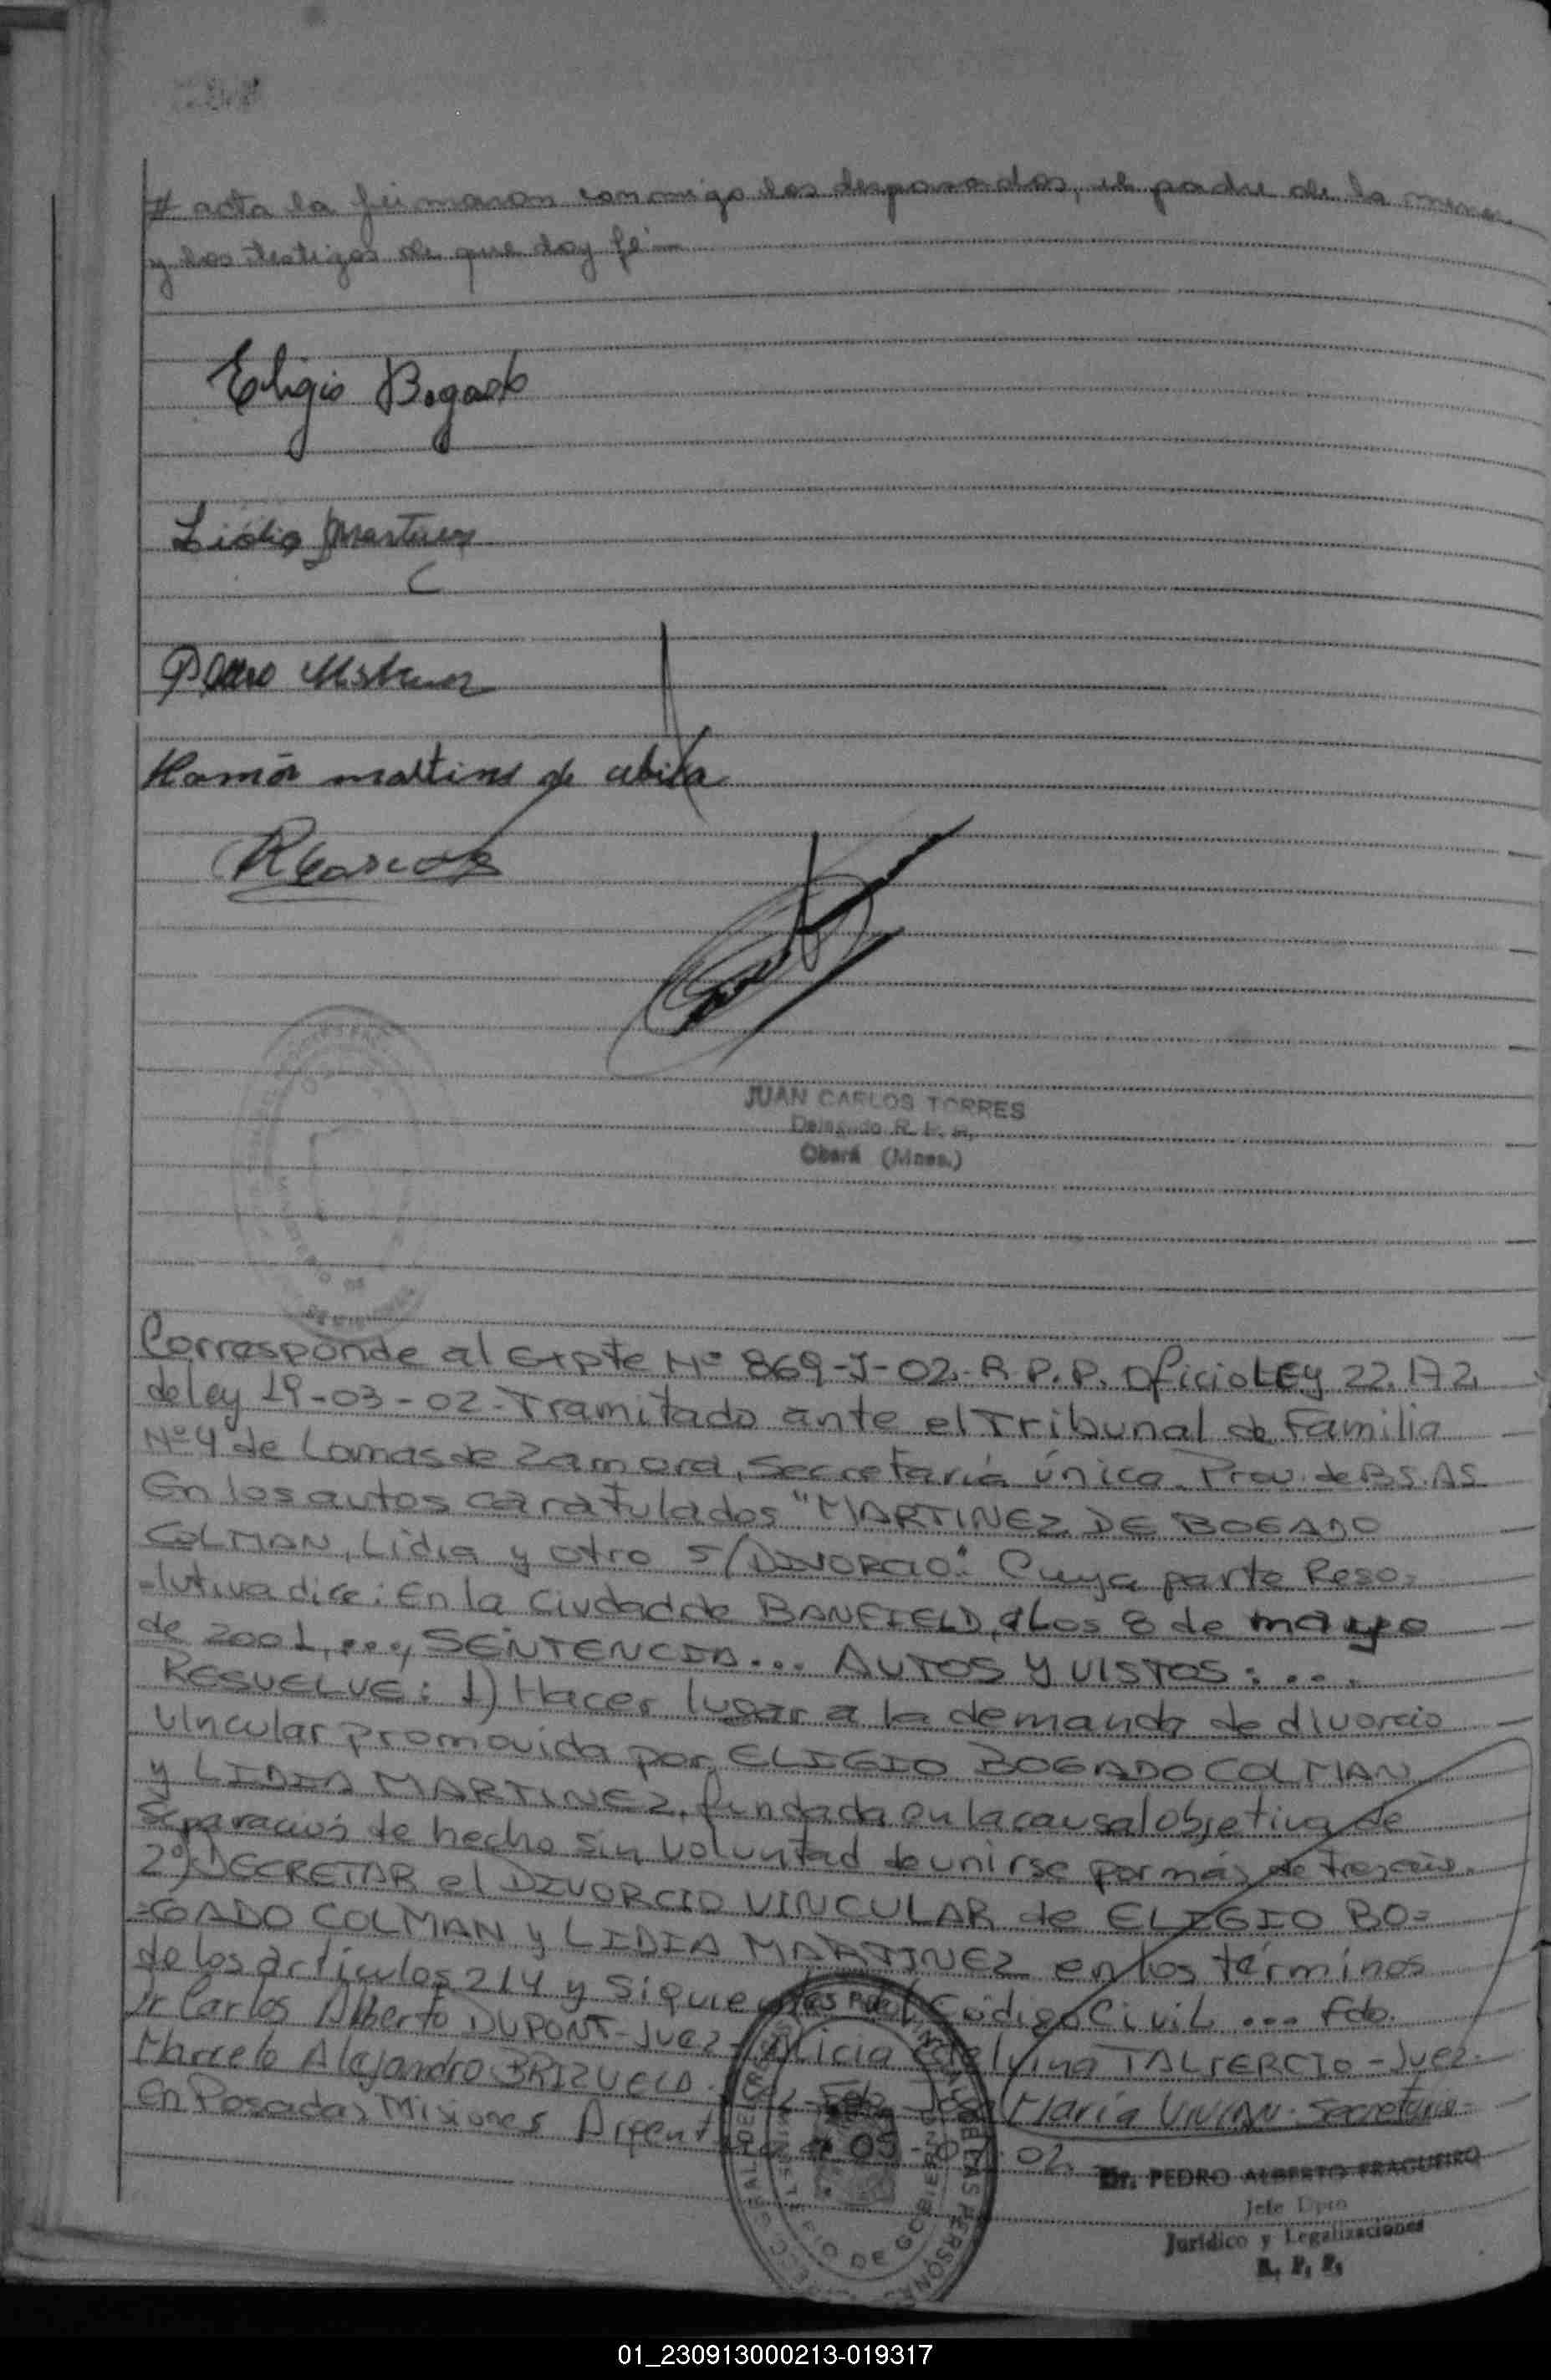 # acta la firmaron conmigo los desposados, el padre de la menor
y los testigos de que doy fé
Eligio Bogado
Lidia Martinez
Pedro Martinez
Ramón martins de
JUAN CARLOS TORRES
Delegado R. P. P.
Oberá (Mnes.)
Corresponde al Expte Nº 869-J-02.- R.P.P. Oficio LEY 22.172,
de ley 19-03-02.- Tramitado ante el Tribunal de Familia
Nº4 de Lomas de Zamora, Secretaría única. Prov. de BS.AS
En los autos caratulados "MARTINEZ DE BOGADO
COLMAN, Lidia y otro S/DIVORCIO". Cuya parte Reso-
-lutiva dice: En la Ciudad de BANFIELD, a los 8 de mayo
de 2001, ..., SENTENCIA... AUTOS Y VISTOS: ....
RESUELVE: 1) Hacer lugar a la demanda de divorcio
vincular promovida por ELIGIO BOGADO COLMAN
y LIDIA MARTINEZ, fundada en la causal objetiva de
separación de hecho sin voluntad de unirse por más de tres
2º) DECRETAR el DIVORCIO VINCULAR de ELIGIO BO=
=GADO COLMAN y LIDIA MARTINEZ en los términos
de los artículos 214 y Siguientes del Código Civil ... Fdo.
Dr Carlos Alberto DUPONT-Juez- Alicia TALTERCIO-Juez-
Marcelo Alejandro BRIZUELA. Fdo. José María VIVIAN-Secretario-
En Posadas Misiones Argentina a 05- 02.
Dr. PEDRO ALBERTO FRAGUEIRO
Jefe Dpto
Jurídico y Legalizaciones
R. P. P.
01_230913000213-019317